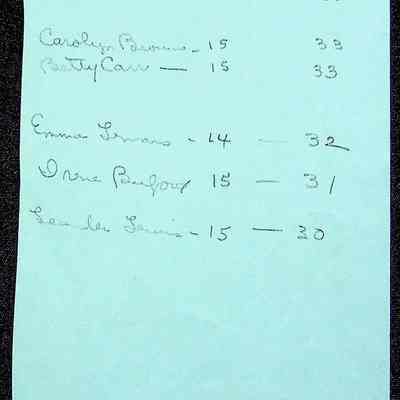 Carolyn Browne - 15 33
Betty Carr — 15 33
Emma - 14 — 32
Irene 15 — 31
Lewis - 15 — 30